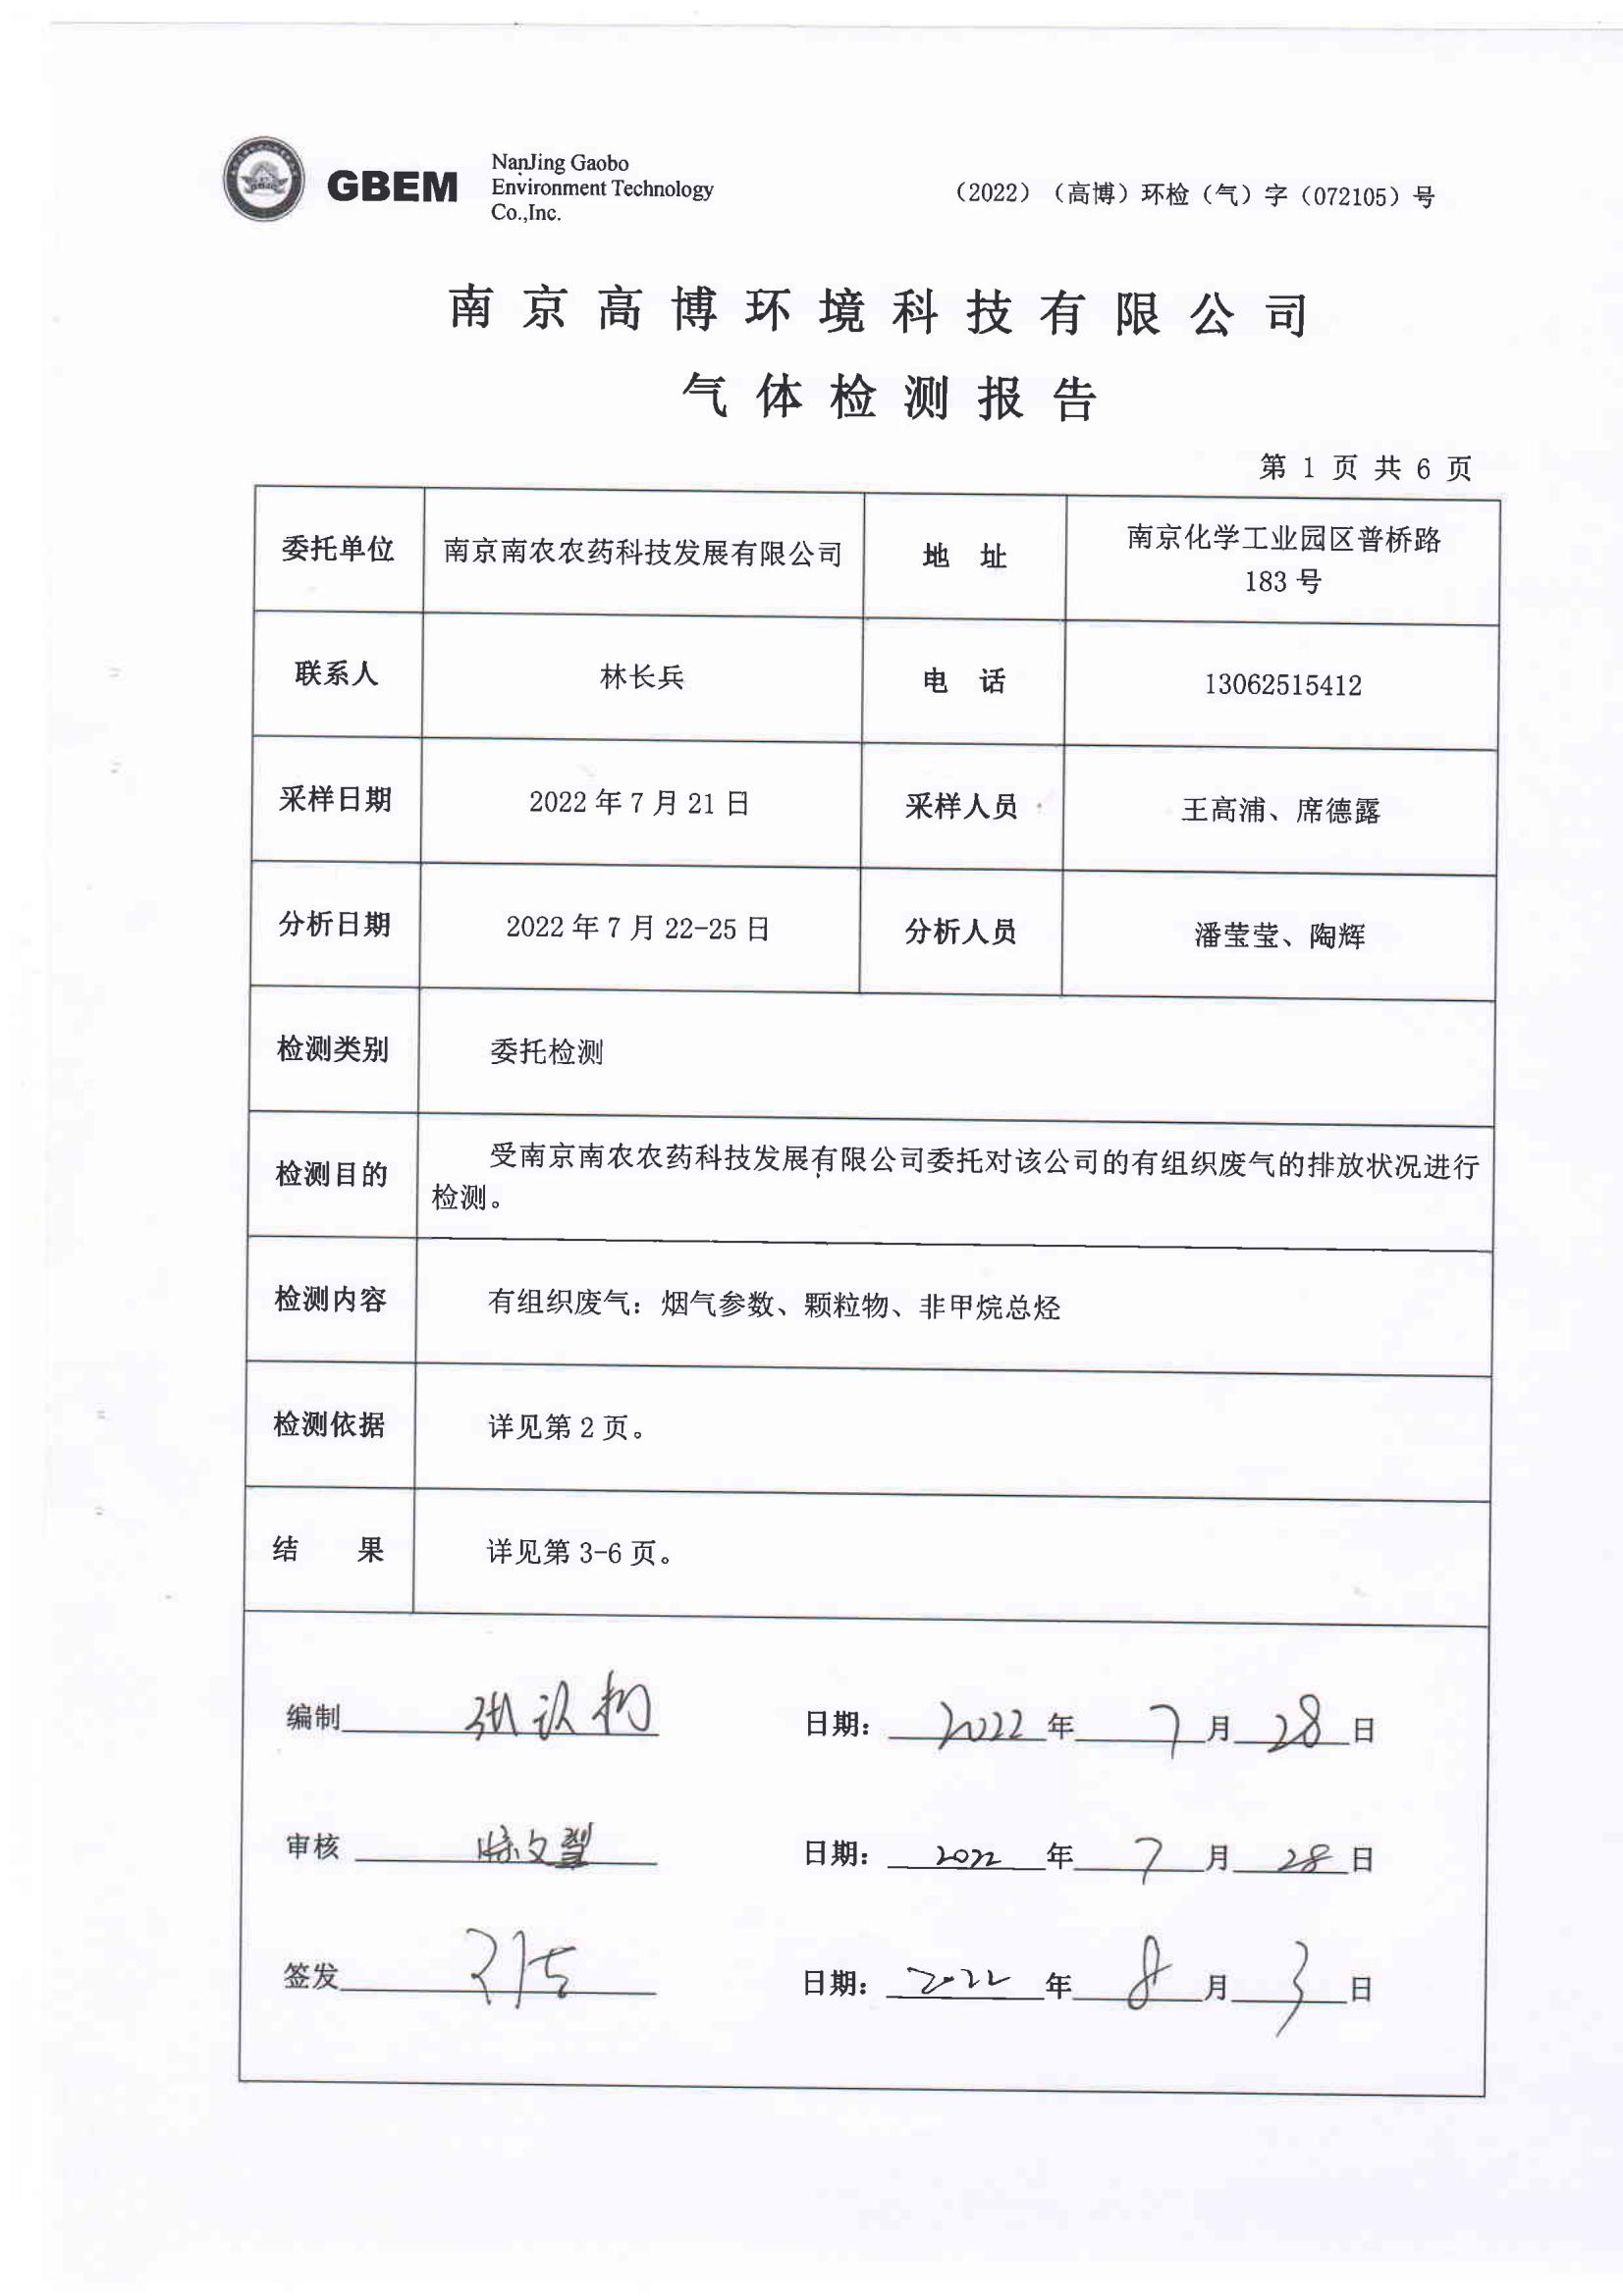 GBEM
NanJing Gaobo
Environment Technology
Co.,Inc.
（2022）（高博）环检（气）字（072105）号
南京高博环境科技有限公司
气体检测报告
第 1 页 共 6 页
委托单位 南京南农农药科技发展有限公司 地 址 南京化学工业园区普桥路
183 号
联系人 林长兵 电 话 13062515412
采样日期 2022 年 7 月 21 日 采样人员 王高浦、席德露
分析日期 2022 年 7 月 22-25 日 分析人员 潘莹莹、陶辉
检测类别 委托检测
检测目的 受南京南农农药科技发展有限公司委托对该公司的有组织废气的排放状况进行
检测。
检测内容 有组织废气：烟气参数、颗粒物、非甲烷总烃
检测依据 详见第 2 页。
结 果 详见第 3-6 页。
编制 日期： 2022 年 7 月 28 日
审核 日期： 2022 年 7 月 28 日
签发 日期： 2022 年 8 月 3 日